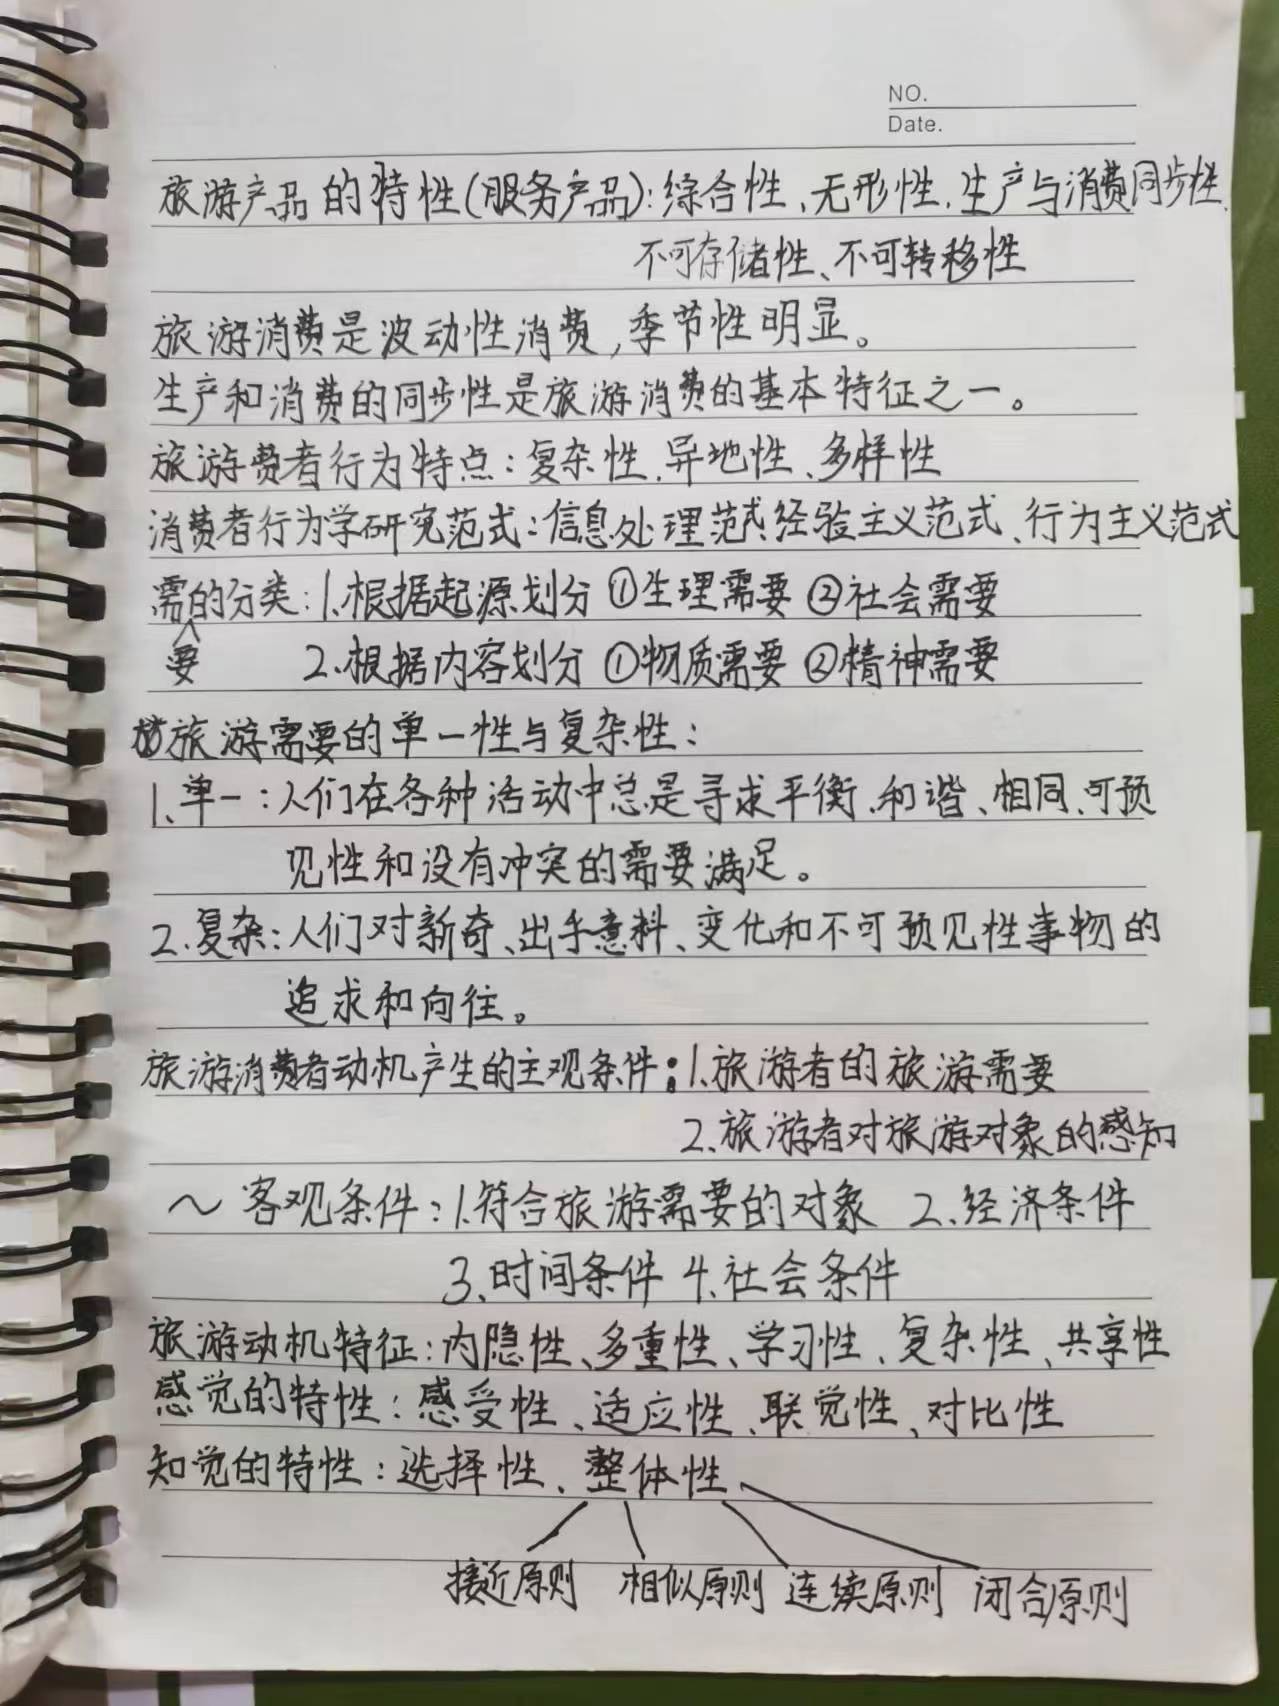 NO.
Date.
旅游产品的特性(服务产品):综合性、无形性、生产与消费同步性、
不可存储性、不可转移性
旅游消费是波动性消费,季节性明显。
生产和消费的同步性是旅游消费的基本特征之一。
旅游费者行为特点:复杂性、异地性、多样性
消费者行为学研究范式:信息处理范式、经验主义范式、行为主义范式
需的分类:1.根据起源划分 ①生理需要 ②社会需要
要 2.根据内容划分 ①物质需要 ②精神需要
旅游需要的单一性与复杂性:
1.单一:人们在各种活动中总是寻求平衡、和谐、相同、可预
见性和没有冲突的需要满足。
2.复杂:人们对新奇、出乎意料、变化和不可预见性事物的
追求和向往。
旅游消费者动机产生的主观条件:1.旅游者的旅游需要
2.旅游者对旅游对象的感知
~客观条件:1.符合旅游需要的对象 2.经济条件
3.时间条件 4.社会条件
旅游动机特征:内隐性、多重性、学习性、复杂性、共享性
感觉的特性:感受性、适应性、联觉性、对比性
知觉的特性:选择性、整体性
接近原则 相似原则 连续原则 闭合原则